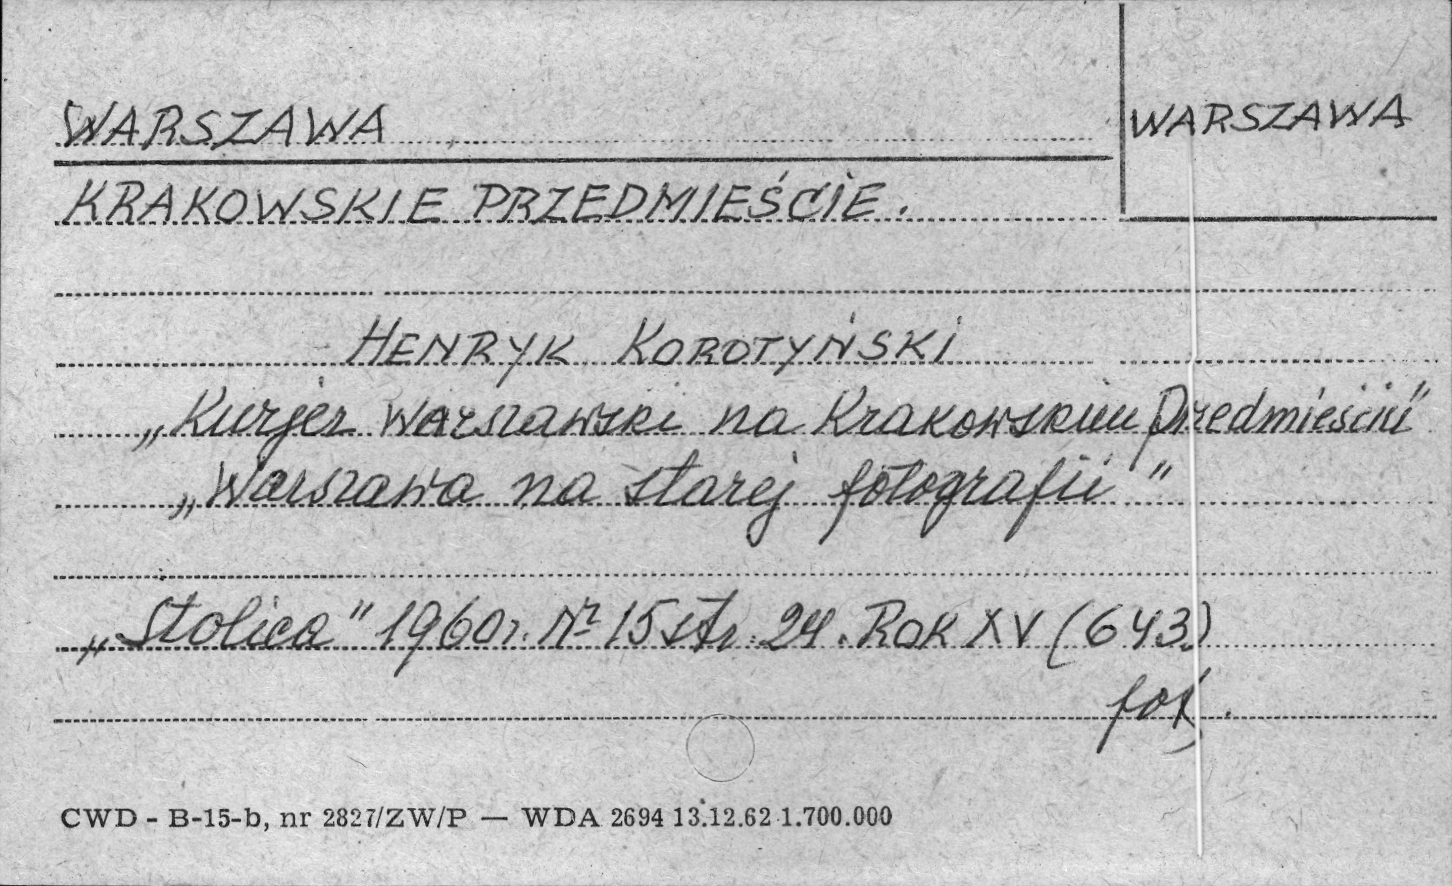 WARSZAWA
WARSZAWA
KRAKOWSKIE PRZEDMIEŚCIE.
HENRYK KOROTYŃSKI
„Kurjer Warszawski na Krakowskim Przedmieściu"
„Warszawa na starej fotografii"
„Stolica" 1960r. Nr 15 str. 24. Rok XV (643)
fot.
CWD - B-15-b, nr 2827/ZW/P — WDA 2694 13.12.62 1.700.000